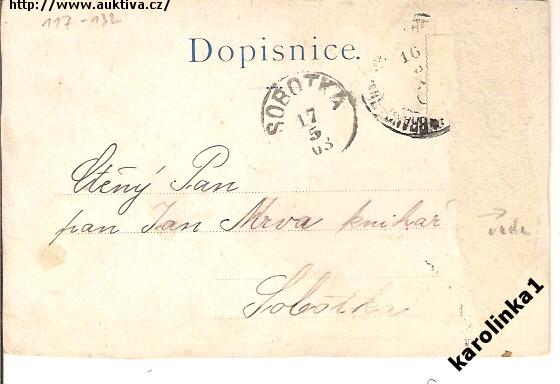 http://www.auktiva.cz/
117-132
Dopisnice.
SOBOTKA
17
5
03
16
Ctěný Pan
pan Jan Mrva knihař
Sobotka
→
vada
karolinka1